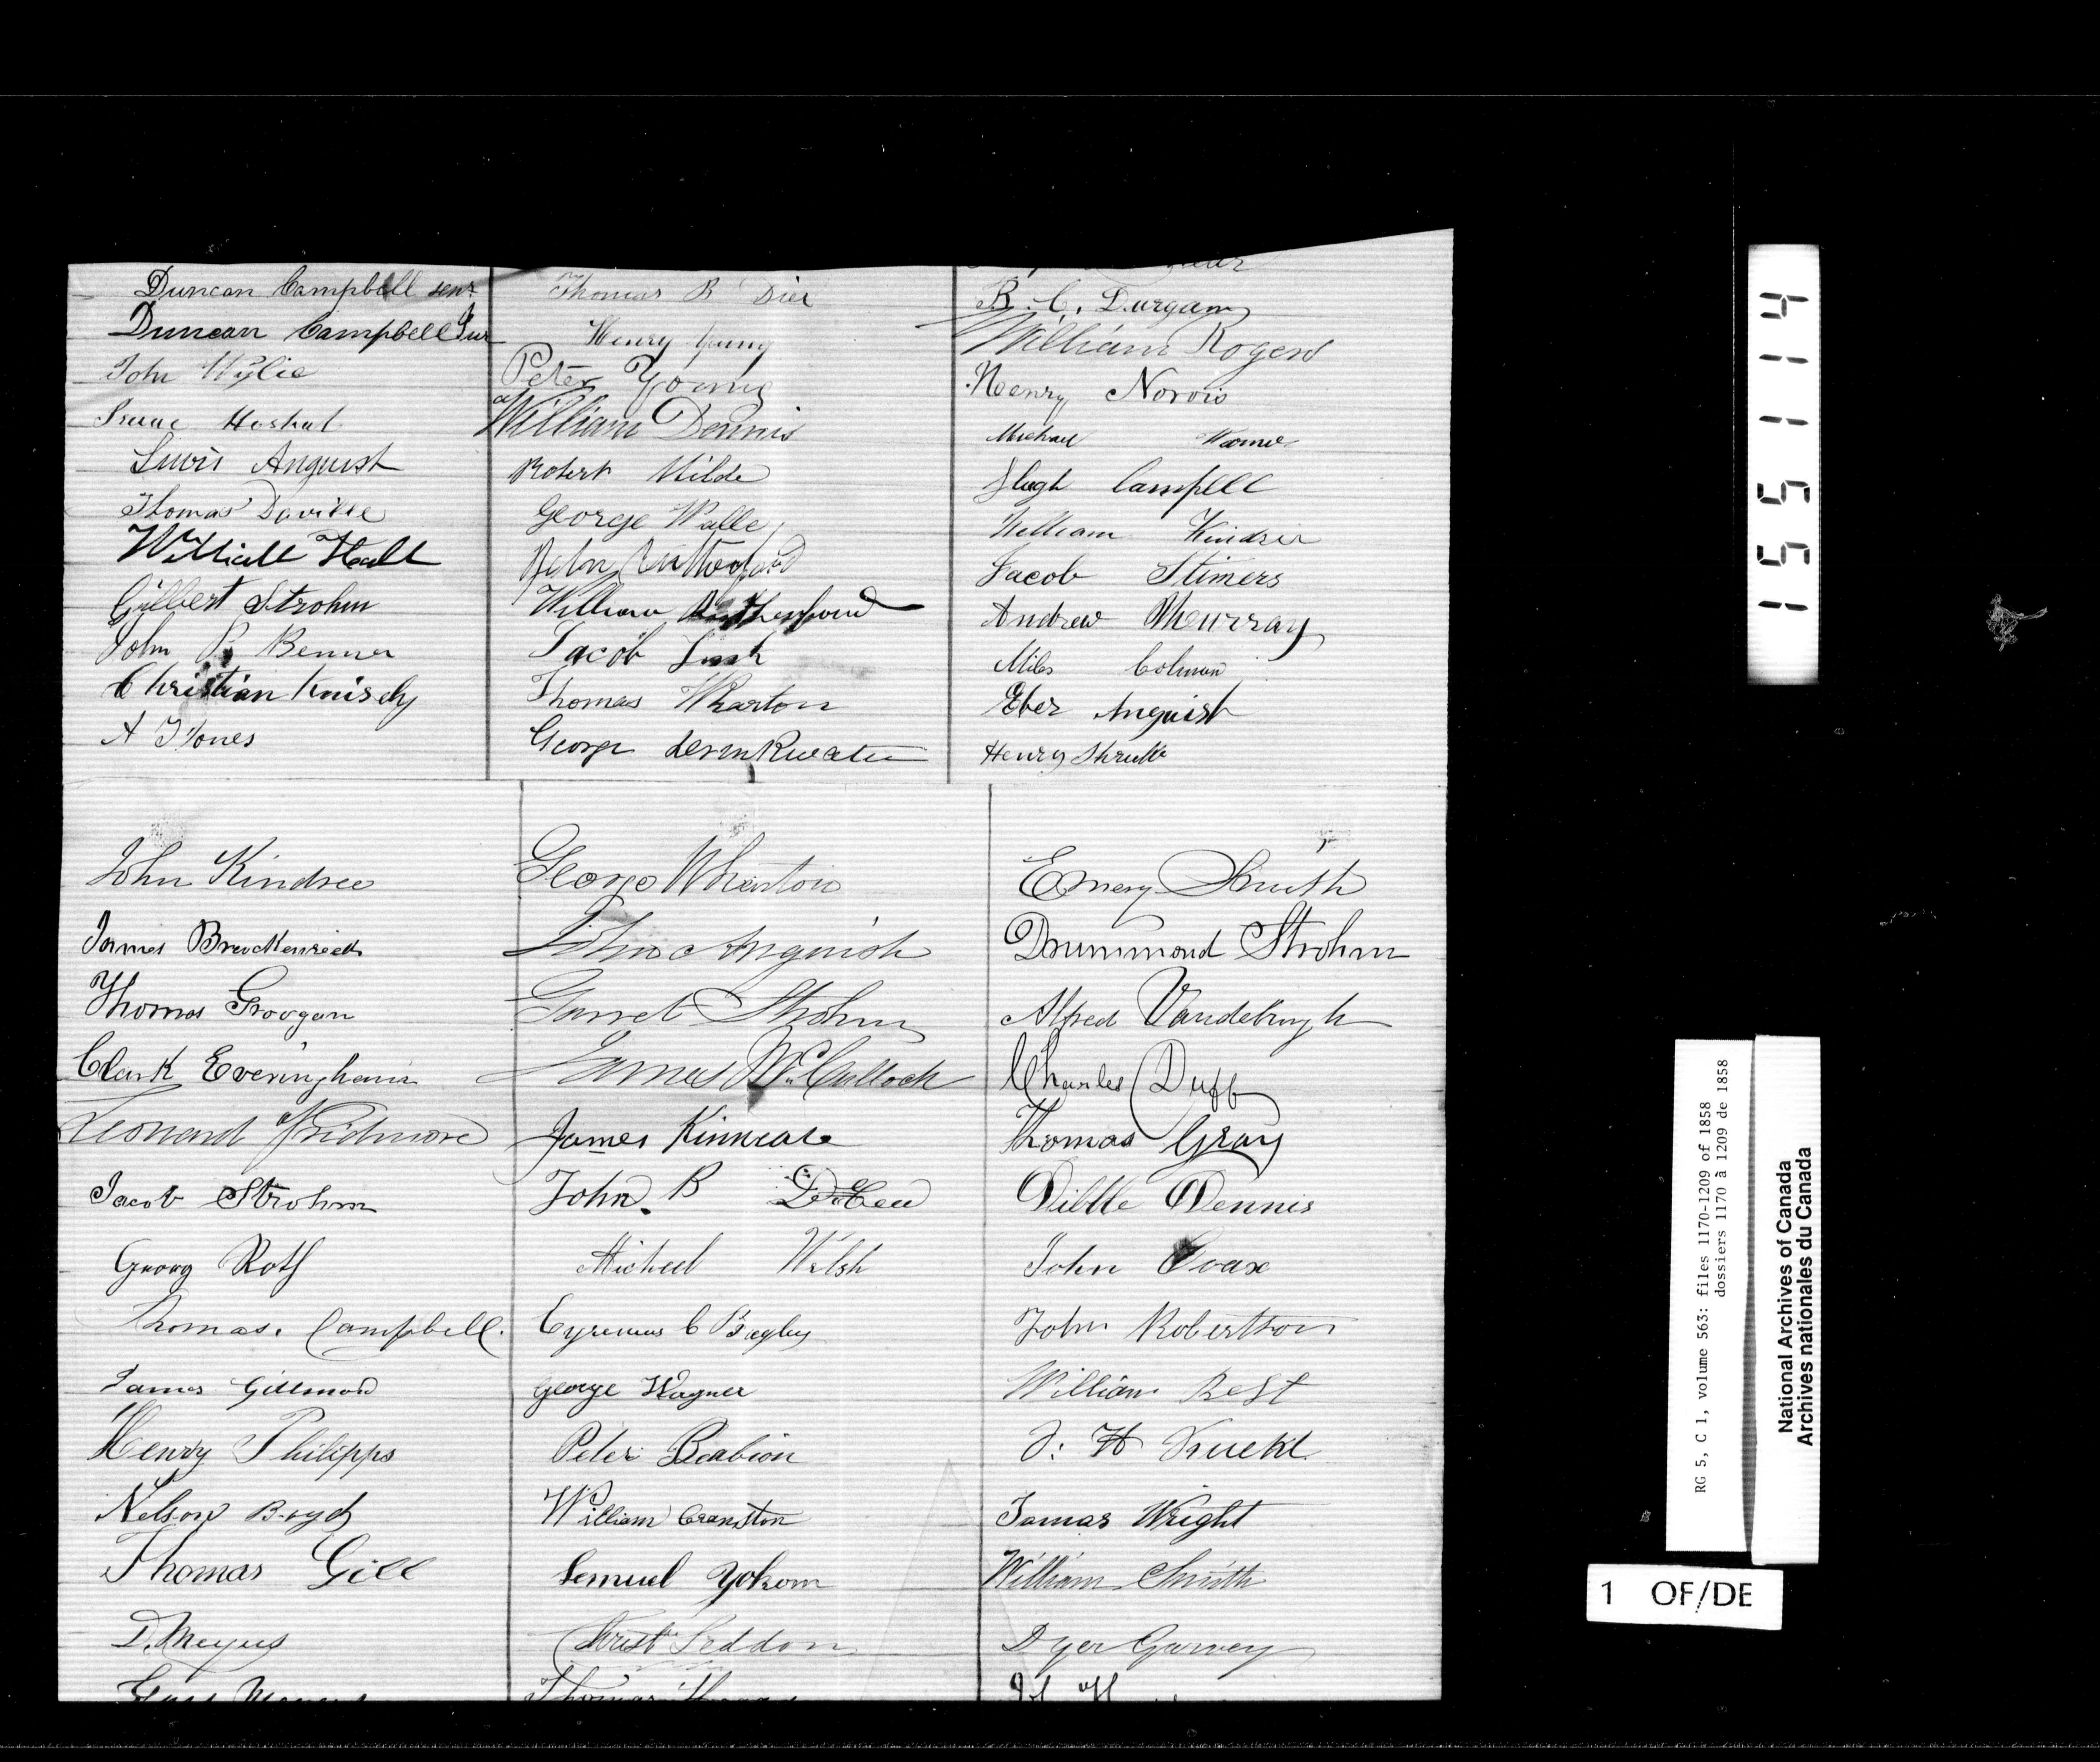 Duncan Campbell senr
Duncan Campbell Jur
John Wylie
Isaac Hoshal
Lewis Anguish
Thomas Daville
William Hall
Gilbert Strohm
John P. Benner
Christian Knisely
A Jones
Thomas B Dier
Henry Young
Peter Young
William Dennis
Robert Milde
George Walle
John Rutherford
William Rutherford
Jacob
Thomas Wharton
George
B. C. Durgam
William Rogers
Henry Norvis
Michael
Hugh Campbell
William Kindree
Jacob Stimers
Andrew Murray
Miles Colman
Eber Anguish
Henry
John Kindree
James Breckenreed
Thomas Groogan
Clark Everingham
Leonard Pridmore
Jacob Strohm
Georg Roth
Thomas. Campbell.
James Gillmore
Henry Philipps
Nelson Boyd
Thomas Gill
D. Meyus
George Wharton
John Anguish
Garret Strohm
James McCulloch
James Kinneare
John. B
Micheel Welsh
Cyrenus C Bagley
George Wagner
Peter Beabion
William Cranston
Lemuel Yokom
Christr Seddon
Thomas
Emery Smith
Drummond Strohm
Alfred Vandeburgh
Charles Duff
Thomas Gray
Dibble Dennis
John Coax
John Robertson
William Best
J: H
James Wright
William Smith
Dyer Garvey
1 5 5 1 1 4
RG 5, C 1, volume 563: files 1170-1209 of 1858
dossiers 1170 à 1209 de 1858
National Archives of Canada
Archives nationales du Canada
1 OF/DE